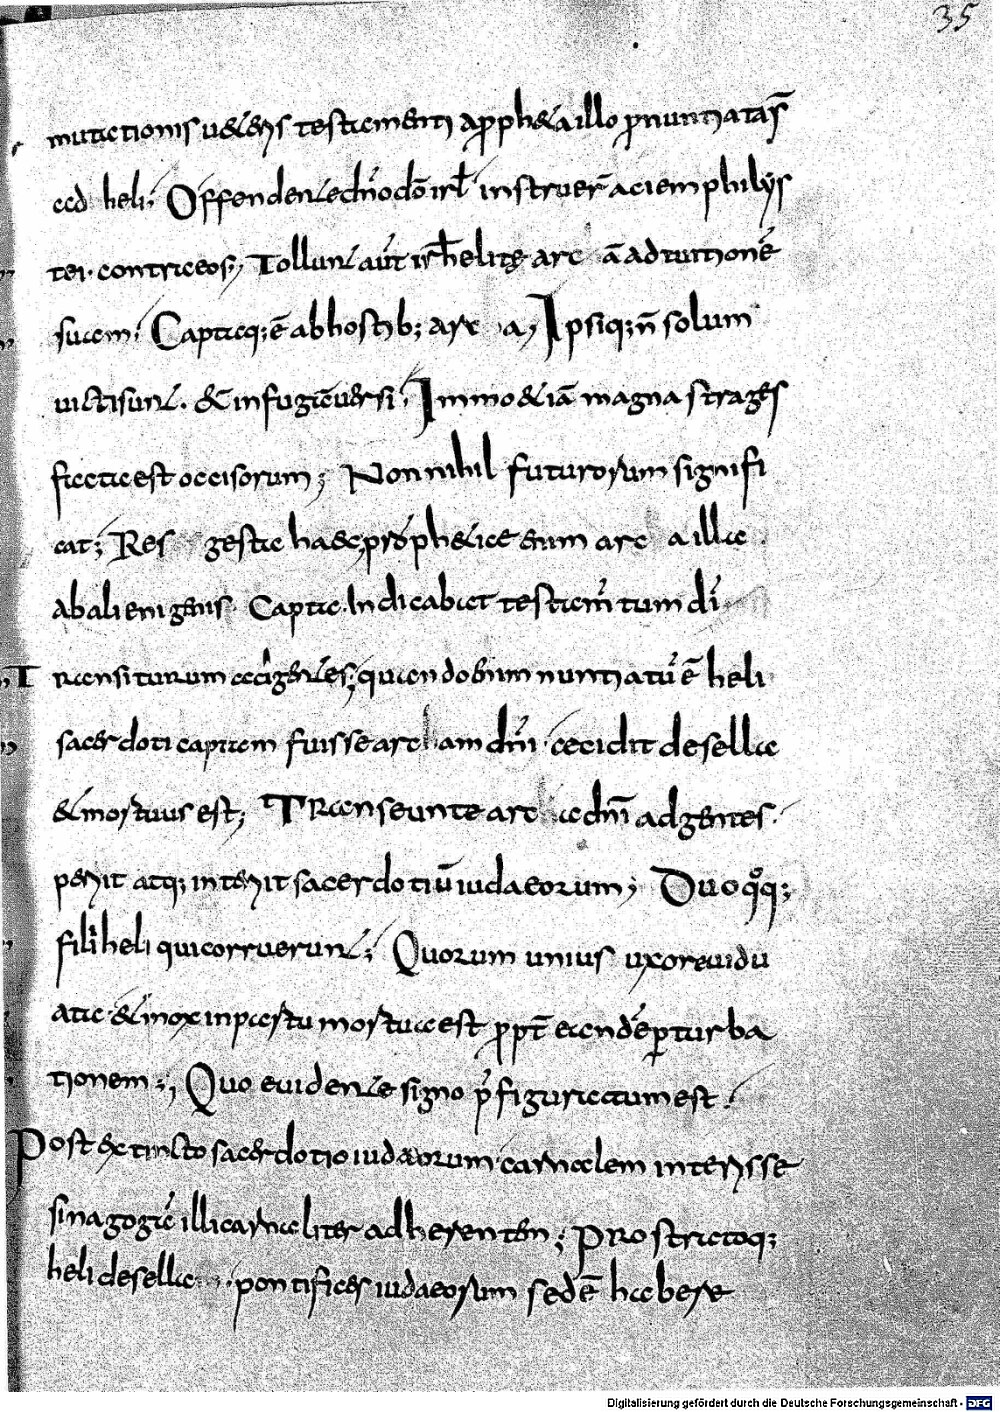 35
mutationis ueteris testamenti a ppheta illo pnuntiatas
ad heli; Offendente dño dō isrl instruer̄ aciem philis
tei. contra eos; Tollunt aut̄ isrhelite arc ā ad tutionē
suam; Captaq; ē ab hostib; arc a; Ipsiq; n̄ solum
uicti sunt. & in fugā uersi; Immo & iā magna strages
facta est occisorum; Non nihil futurorum signifi
cat; Res gestae haec, prophetice enim arc a illa
ab alienigenis. Capta. Indicabat testam̄tum dī
Transiturum ad gentes; quando enim nuntiatū ē heli
sacerdoti captam fuisse arc am dñi. cecidit de sella
& mortuus est; Transeunte arc a dñi ad gentes.
periit atq; interiit sacerdotiū iudaeorum; Duo qq;
filii heli qui corruerunt; Quorum unius uxore uidu
ata. & mox in partu mortua est ppt̄ eandē pturba
tionem; Quo euidente signo p̄figuratum est.
Post extincto sacerdotio iudaeorum. carnalem interisse
sinagogā illi carnaliter adherentem; Prostratoq;
heli de sella pontifices iudaeorum sedē habere
Digitalisierung gefördert durch die Deutsche Forschungsgemeinschaft - DFG